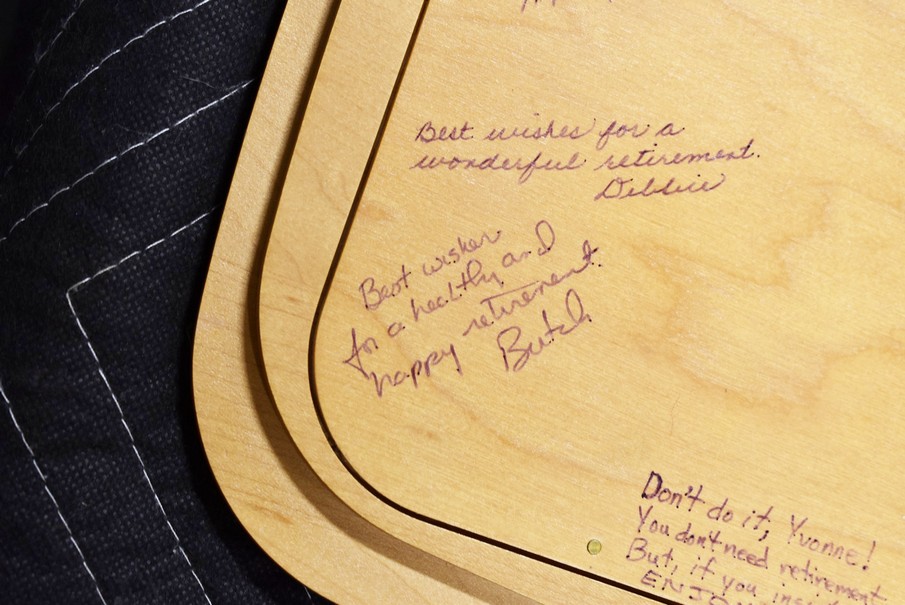 Best wishes for a
wonderful retirement.
Debbie
Best wishes
for a healthy and
happy retirement.
Butch
Don't do it, Yvonne!
You don't need retirement
But, if you